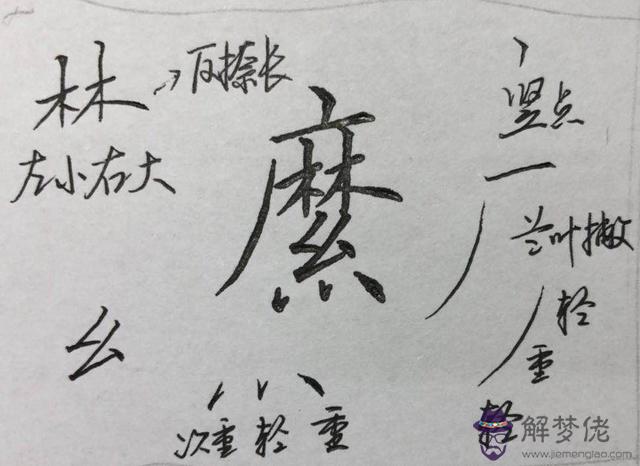 林 反捺长
左小右大
縻
幺
竖点
兰叶撇
轻
重
轻
次重 轻 重
解梦佬
www.jiemenglao.com